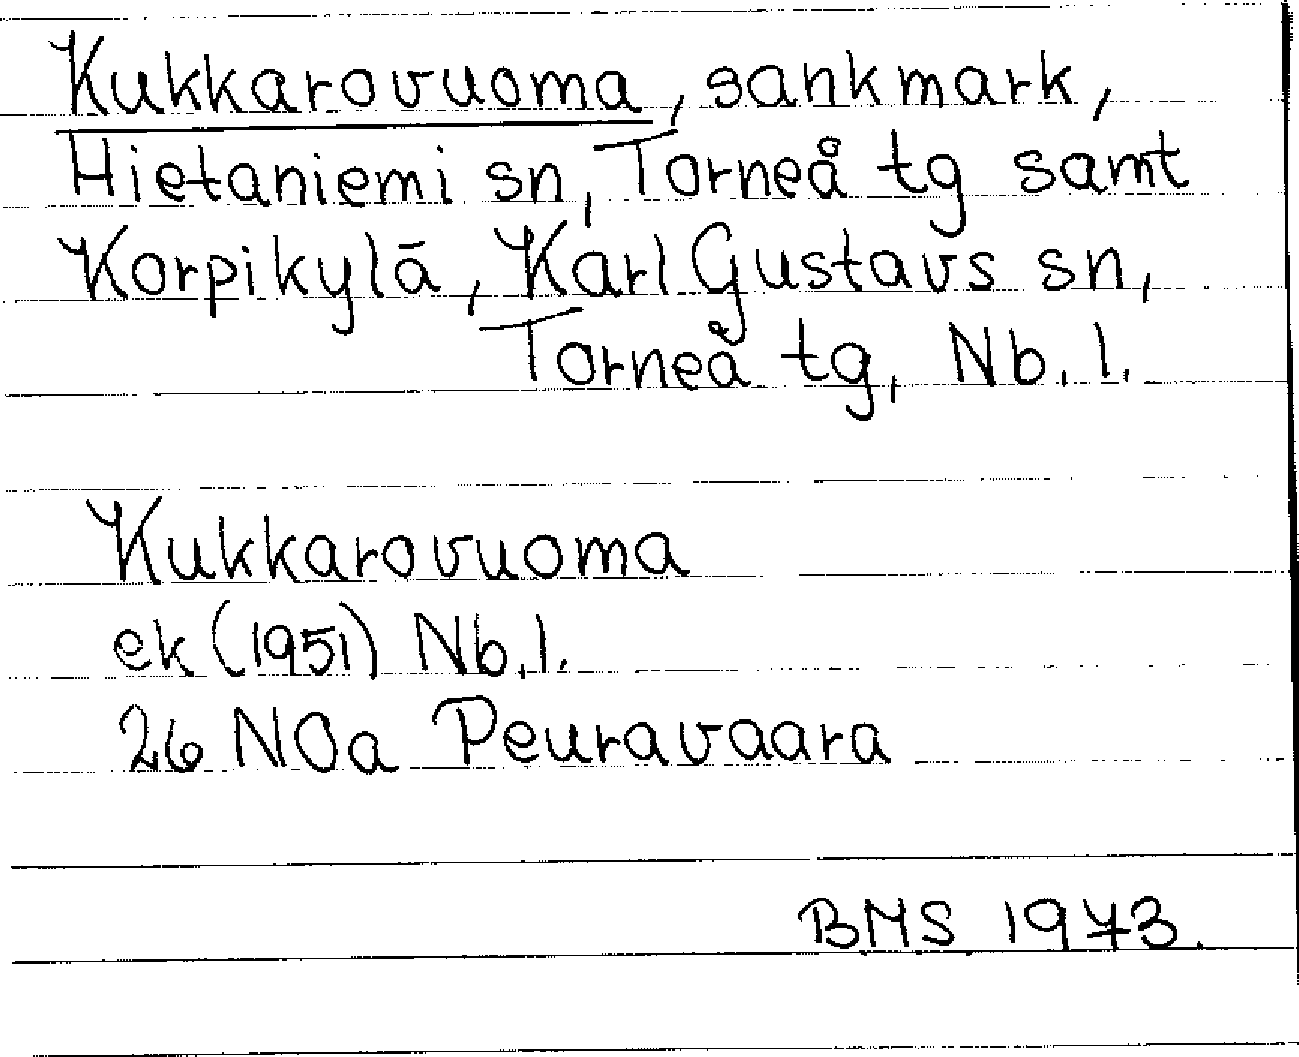 Kukkarovuoma, sankmark,
Hietaniemi sn, Torneå tg samt
Korpikylä, Karl Gustavs sn,
Torneå tg, Nb. l.
Kukkarovuoma
ek (1951) Nb. l.
26 NOa Peuravaara
BMS 1973.